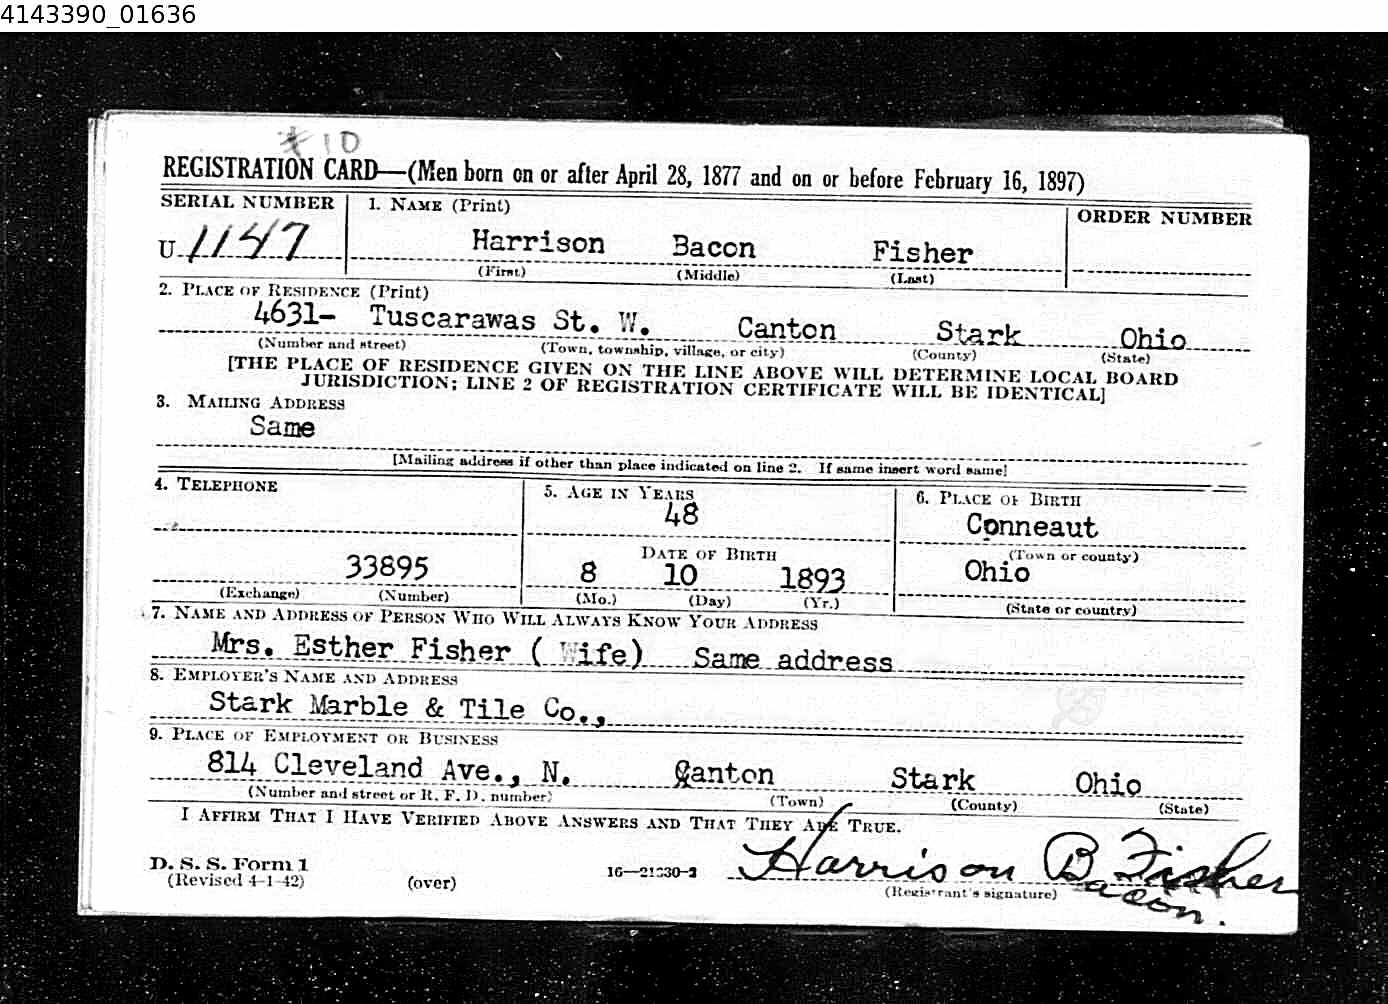 4143390_01636
#10
REGISTRATION CARD—(Men born on or after April 28, 1877 and on or before February 16, 1897)
SERIAL NUMBER
1. NAME (Print)
ORDER NUMBER
U 1147
Harrison Bacon Fisher
(First) (Middle) (Last)
2. PLACE OF RESIDENCE (Print)
4631- Tuscarawas St. W. Canton Stark Ohio
(Number and street) (Town, township, village, or city) (County) (State)
[THE PLACE OF RESIDENCE GIVEN ON THE LINE ABOVE WILL DETERMINE LOCAL BOARD
JURISDICTION; LINE 2 OF REGISTRATION CERTIFICATE WILL BE IDENTICAL]
3. MAILING ADDRESS
Same
[Mailing address if other than place indicated on line 2. If same insert word same]
4. TELEPHONE
33895
(Exchange) (Number)
5. AGE IN YEARS
48
DATE OF BIRTH
8 10 1893
(Mo.) (Day) (Yr.)
6. PLACE OF BIRTH
Conneaut
(Town or county)
Ohio
(State or country)
7. NAME AND ADDRESS OF PERSON WHO WILL ALWAYS KNOW YOUR ADDRESS
Mrs. Esther Fisher ( Wife) Same address
8. EMPLOYER'S NAME AND ADDRESS
Stark Marble & Tile Co.,
9. PLACE OF EMPLOYMENT OR BUSINESS
814 Cleveland Ave., N. Canton Stark Ohio
(Number and street or R. F. D. number) (Town) (County) (State)
I AFFIRM THAT I HAVE VERIFIED ABOVE ANSWERS AND THAT THEY ARE TRUE.
D. S. S. Form 1
(Revised 4-1-42) (over) 16—21630-2
Harrison B Fisher
Bacon.
(Registrant's signature)